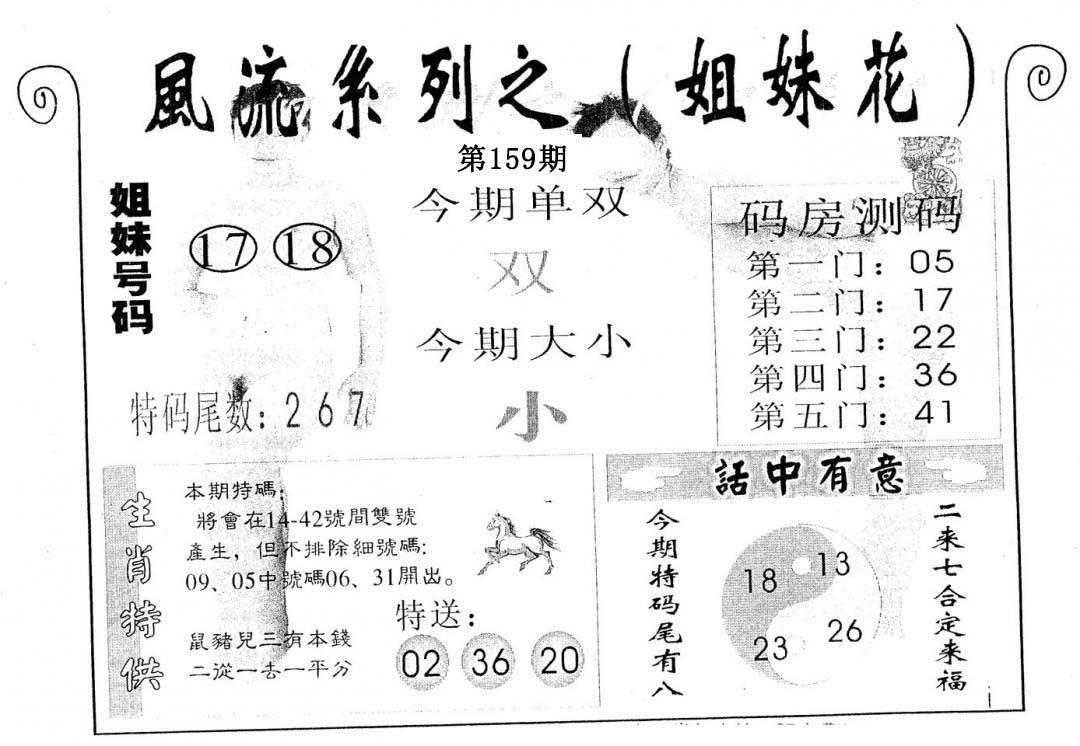 風流系列之（姐妹花）
第159期
姐妹号码
17 18
特码尾数：2 6 7
今期单双
双
今期大小
小
码房测码
第一门：05
第二门：17
第三门：22
第四门：36
第五门：41
生肖特供
本期特碼：
將會在14-42號間雙號
產生，但不排除細號碼：
09、05中號碼06、31開出。
鼠豬兒三有本錢
二從一去一平分
特送：
02 36 20
話中有意
今期特码尾有八
18 13
23 26
二来七合定来福